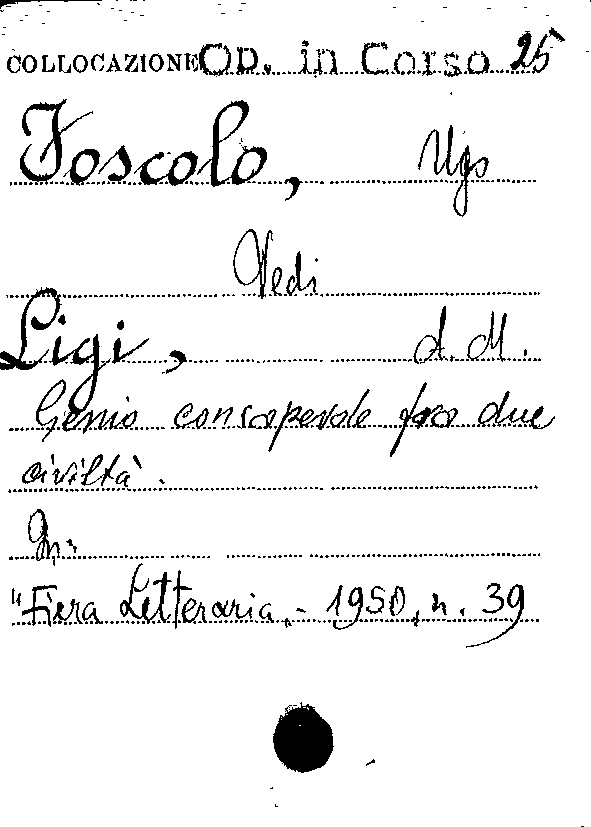 COLLOCAZIONE OD. in Corso 25
Foscolo, Ugo
Vedi
Ligi, A. M.
Genio consapevole fra due
civiltà.
In:
"Fiera Letteraria„ - 1950, n. 39